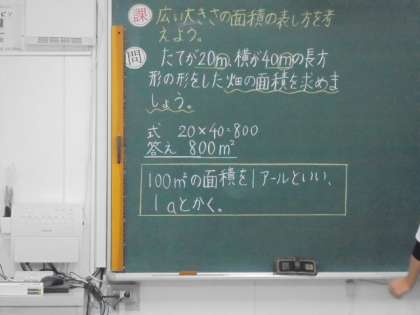 課 広い大きさの面積の表し方を考
えよう。
問 たてが20m、横が40mの長方
形の形をした畑の面積を求めま
しょう。
式 20×40=800
答え 800m²
100m²の面積を1アールといい、
1aとかく。